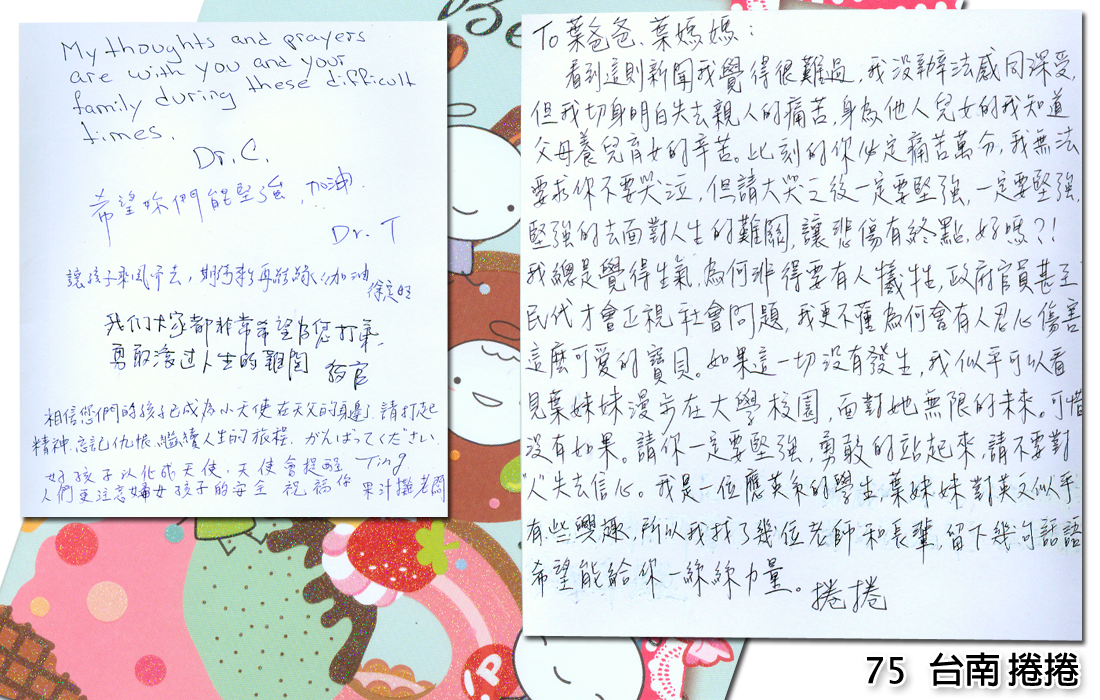 My thoughts and prayers
are with you and your
family during these difficult
times.
Dr. C.
希望妳們能堅強,加油.
Dr. T
讓孩子乘風歸去,期待再結緣,加油
我们大家都非常希望為您打氣,
勇敢渡过人生的難関
相信您們的孩子已成為小天使在天父的身邊,請打起
精神.忘記仇恨.繼續人生的旅程. がんばってください.
好孩子以化成天使,天使會提醒 Ting
人們更注意婦女孩子的安全 祝福你 果汁攤老闆
Be
To 葉爸爸、葉媽媽:
看到這則新聞我覺得很難過,我沒辦法感同深受,
但我切身明白失去親人的痛苦,身為他人兒女的我知道
父母養兒育女的辛苦。此刻的你必定痛苦萬分,我無法
要求你不要哭泣,但請大哭之後一定要堅強,一定要堅強,
堅強的去面對人生的難關,讓悲傷有終點,好嗎?!
我總是覺得生氣,為何非得要有人犧牲,政府官員甚至
民代才會正視社會問題,我更不懂為何會有人忍心傷害
這麼可愛的寶貝。如果這一切沒有發生,我似乎可以看
見葉妹妹漫步在大學校園,面對她無限的未來。可惜
沒有如果。請你一定要堅強,勇敢的站起來,請不要對
"人"失去信心。我是一位應英系的學生,葉妹妹對英文似乎
有些興趣,所以我找了幾位老師和長輩,留下幾句話語
希望能給你一絲絲力量。 捲捲
P
75 台南 捲捲